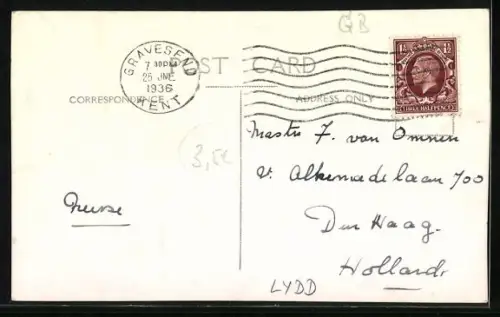 GB
GRAVESEND
7 30PM
25 JNE
1936
KENT
POST CARD
CORRESPONDENCE
ADDRESS ONLY
1½ 1½
THREE HALFPENCE
F. van Ommen
v. Alkemadelaan 700
Den Haag
Holland
3,50
LYDD